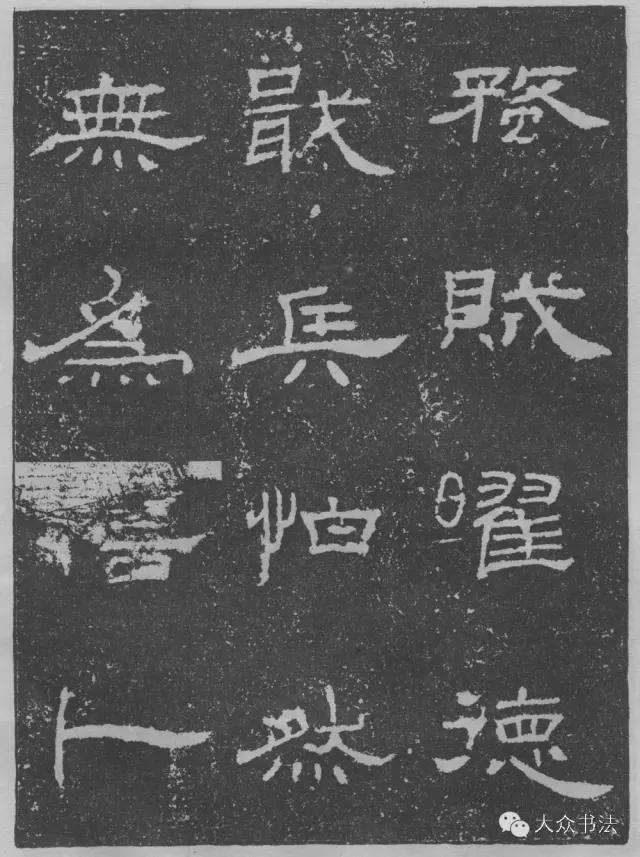 蝥賊曜德
戢兵怕然
無爲卜
大众书法